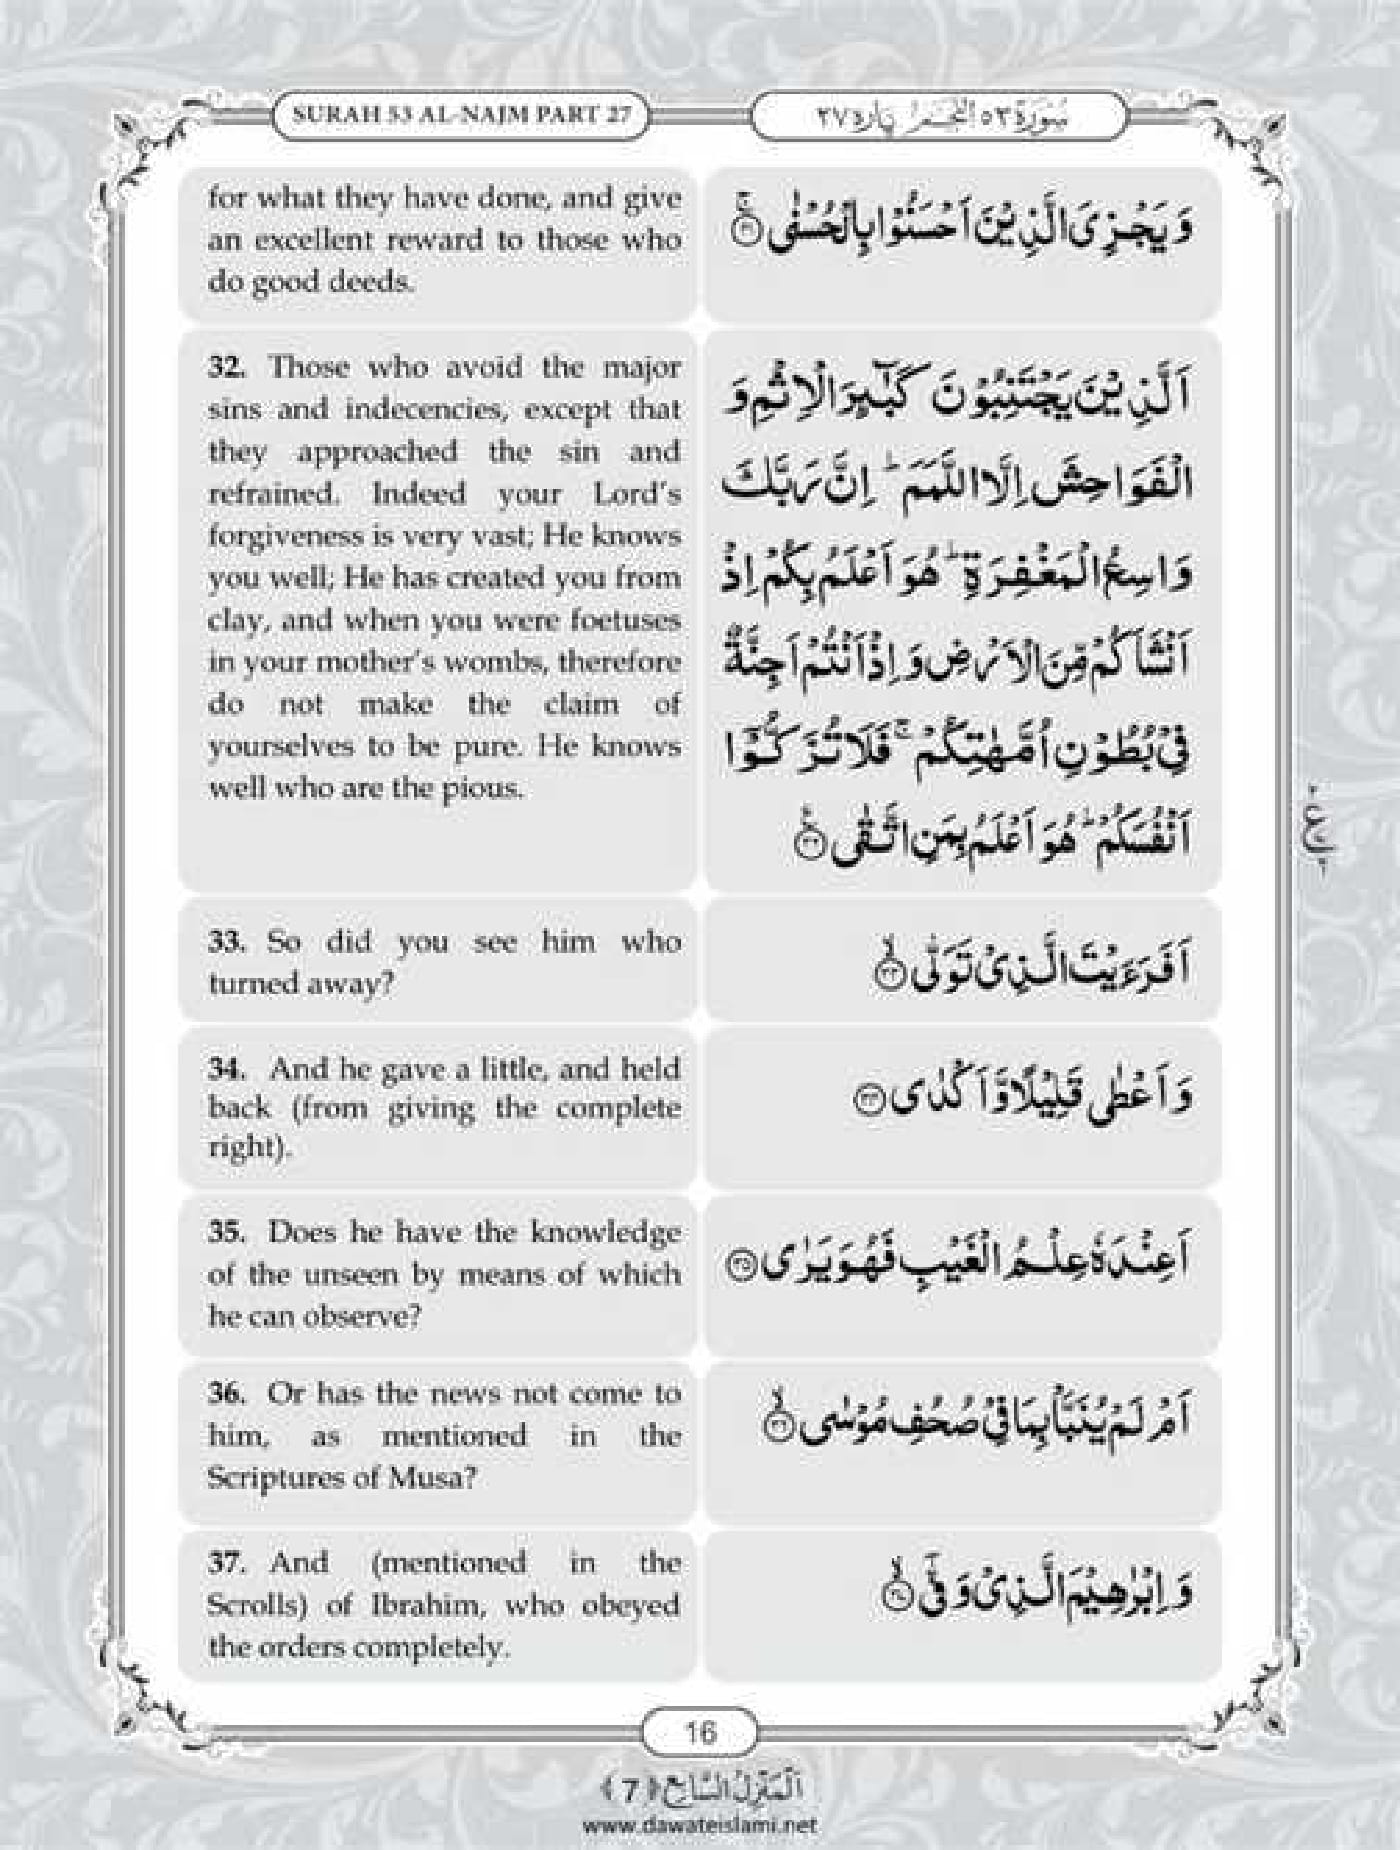 SURAH 53 AL-NAJM PART 27
سُوْرَة ٥٣ اَلنَّجْم پارہ ٢٧
for what they have done, and give
an excellent reward to those who
do good deeds.
وَيَجْزِىَ الَّذِيْنَ اَحْسَنُوْا بِالْحُسْنٰى ۚ‏﴿۳۱﴾
32. Those who avoid the major
sins and indecencies, except that
they approached the sin and
refrained. Indeed your Lord's
forgiveness is very vast; He knows
you well; He has created you from
clay, and when you were foetuses
in your mother's wombs, therefore
do not make the claim of
yourselves to be pure. He knows
well who are the pious.
اَلَّذِيْنَ يَجْتَنِبُوْنَ كَبٰٓئِرَ الْاِثْمِ وَ
الْفَوَاحِشَ اِلَّا اللَّمَمَ ؕ اِنَّ رَبَّكَ
وَاسِعُ الْمَغْفِرَةِ ؕ هُوَ اَعْلَمُ بِكُمْ اِذْ
اَنْشَاَكُمْ مِّنَ الْاَرْضِ وَ اِذْ اَنْتُمْ اَجِنَّةٌ
فِىْ بُطُوْنِ اُمَّهٰتِكُمْ ۚ فَلَا تُزَكُّوْٓا
اَنْفُسَكُمْ ؕ هُوَ اَعْلَمُ بِمَنِ اتَّقٰى ﴿۳۲﴾
33. So did you see him who
turned away?
اَفَرَءَيْتَ الَّذِىْ تَوَلّٰى ۙ﴿۳۳﴾
34. And he gave a little, and held
back (from giving the complete
right).
وَ اَعْطٰى قَلِيْلًا وَّ اَكْدٰى ﴿۳۴﴾
35. Does he have the knowledge
of the unseen by means of which
he can observe?
اَعِنْدَهٗ عِلْمُ الْغَيْبِ فَهُوَ يَرٰى ﴿۳۵﴾
36. Or has the news not come to
him, as mentioned in the
Scriptures of Musa?
اَمْ لَمْ يُنَبَّاْ بِمَا فِىْ صُحُفِ مُوْسٰى ۙ﴿۳۶﴾
37. And (mentioned in the
Scrolls) of Ibrahim, who obeyed
the orders completely.
وَ اِبْرٰهِيْمَ الَّذِىْ وَفّٰىٓ ۙ﴿۳۷﴾
16
اَلْمَنْزِلُ السَّابِع ﴿7﴾
www.dawateislami.net